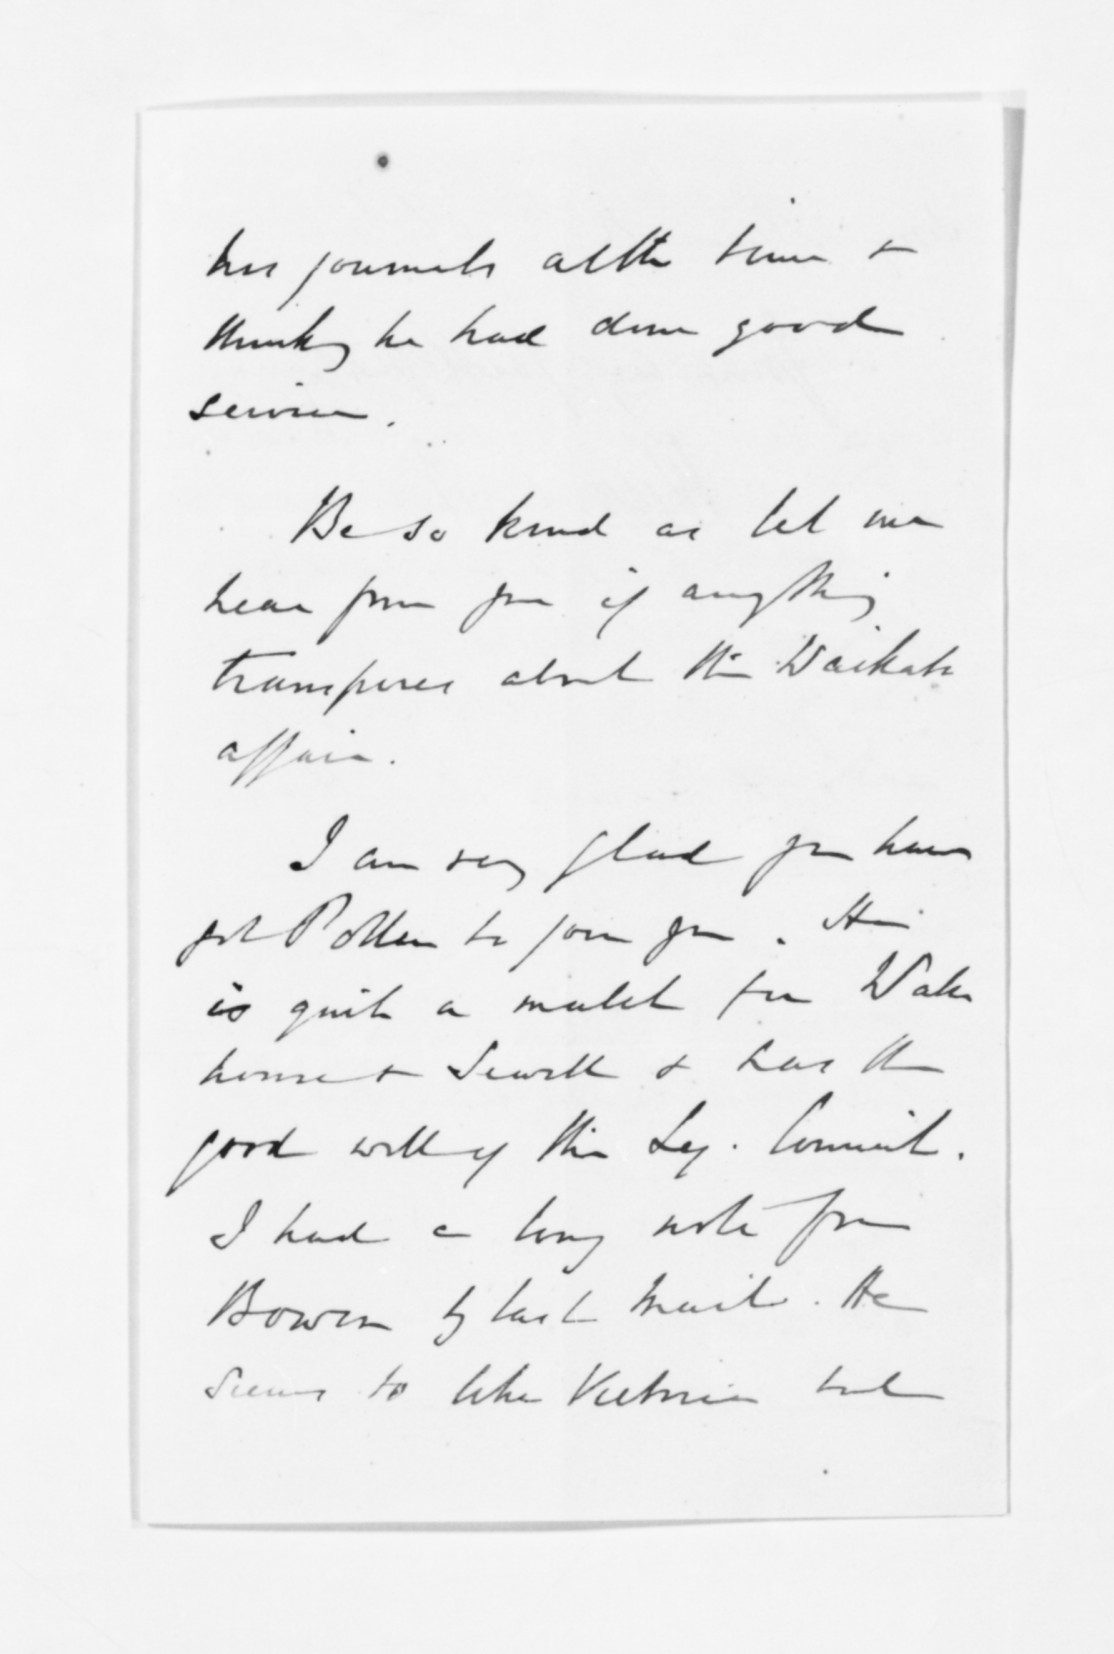 his journals at the time &
thinking he had done good
service.
Be so kind as let me
hear from you if anything
transpires about the Waikato
affair.
I am very glad you have
got Pollen to join you. He
is quite a match for Water
house & Sewell & has the
good will of the Leg. Council.
I had a long note from
Bowen by last Mail. He
seems to like Victoria but